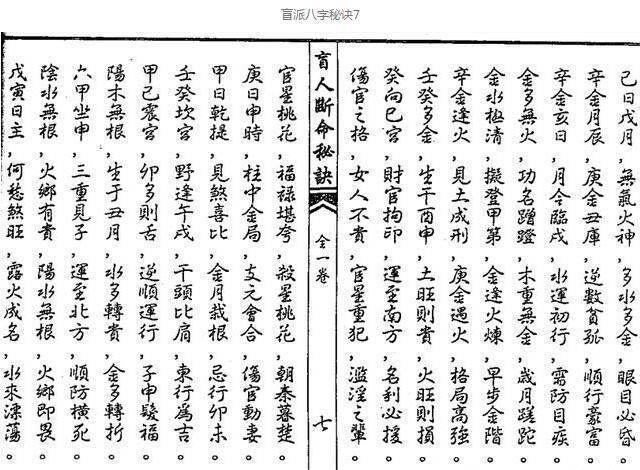 盲派八字秘诀7
己日戌月，無氣火神，多水多金，眼目必昏。
辛金月辰，庚金丑庫，逆數貧孤，順行豪富。
辛金亥日，月令臨戌，水運初行，需防目疾。
金多無火，功名蹭蹬，木重無金，歲月蹉跎。
金水極清，擬登甲第，金逢火煉，早步金階。
辛金逢火，見土成刑，庚金遇火，格局高強。
壬癸多金，生于酉申，土旺則貴，火旺則損。
癸向巳宮，財官拘印，運至南方，名利必援。
傷官之格，女人不貴，官星重犯，濫淫之輩。
盲人斷命秘訣 全一卷 七
官星桃花，福禄堪夸，殺星桃花，朝秦暮楚。
庚日申時，柱中金局，支元會合，傷官動妻。
甲日乾提，見煞喜比，金月栽根，忌行卯未。
壬癸坎宮，野逢午戌，干頭比肩，東行為吉。
甲己震宮，卯多則舌，逆順運行，子申發福。
陽木無根，生于丑月，水多轉貴，金多轉折。
六甲坐申，三重見子，運至北方，順防橫死。
陰水無根，火鄉有貴，陽水無根，火鄉即畏。
戊寅日主，何愁煞旺，露火成名，水來漂蕩。